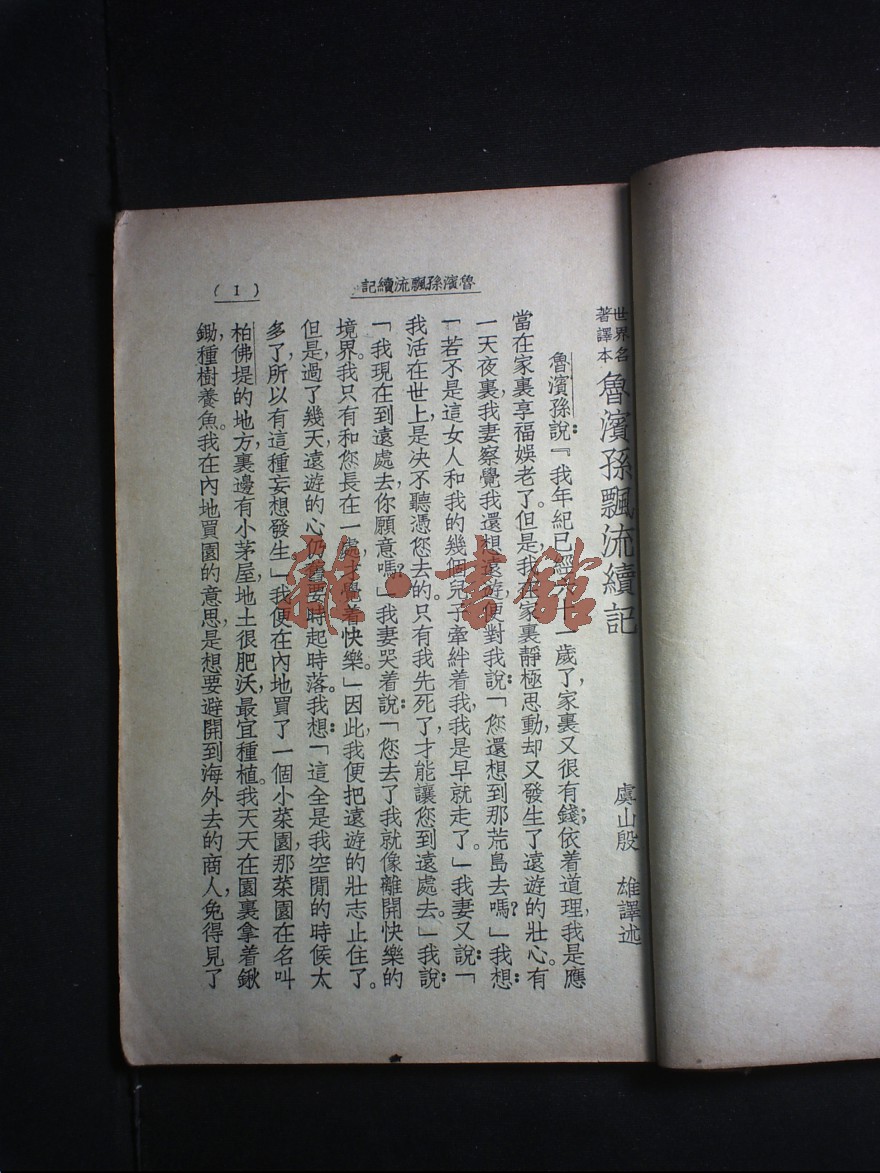 魯濱孫飄流續記
( 1 )
世界名
著譯本
魯濱孫飄流續記
虞山殷 雄譯述
魯濱孫說:『我年紀已經六十一歲了,家裏又很有錢;依着道理,我是應
當在家裏享福娛老了。但是,我在家裏靜極思動,却又發生了遠遊的壯心。有
一天夜裏,我妻察覺我還想遠遊,便對我說:「您還想到那荒島去嗎?」我想:
「若不是這女人和我的幾個兒子牽絆着我,我是早就走了。」我妻又說:「
我活在世上,是决不聽憑您去的。只有我先死了,才能讓您到遠處去。」我說:
「我現在到遠處去,你願意嗎?」我妻哭着說:「您去了,我就像離開快樂的
境界。我只有和您長在一處,才覺着快樂。」因此,我便把遠遊的壯志止住了。
但是,過了幾天,遠遊的心,仍舊要時起時落。我想:「這全是我空閒的時候太
多了,所以有這種妄想發生。」我便在內地買了一個小菜園,那菜園在名叫
柏佛堤的地方,裏邊有小茅屋,地土很肥沃,最宜種植。我天天在園裏拿着鍬
鋤,種樹養魚。我在內地買園的意思,是想要避開到海外去的商人,免得見了
雜·書館